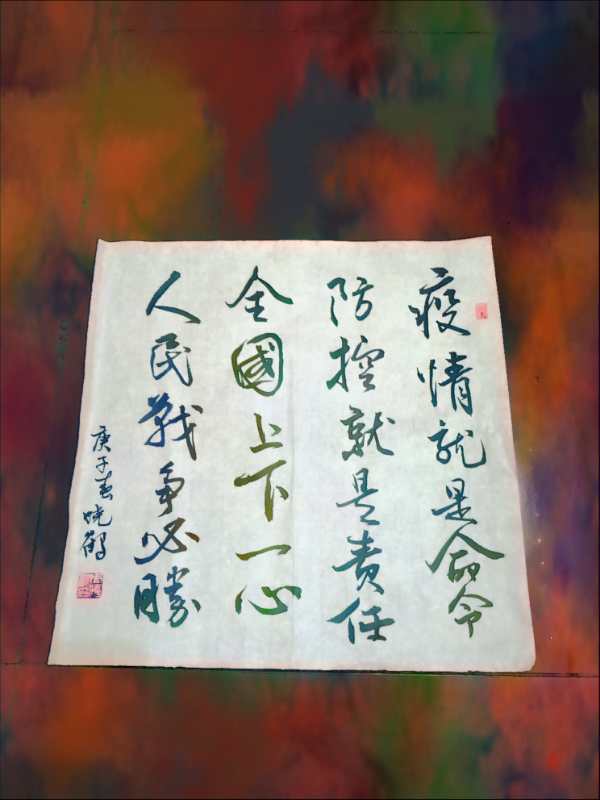 疫情就是命令
防控就是责任
全國上下一心
人民戰争必勝
庚子春晓鶴